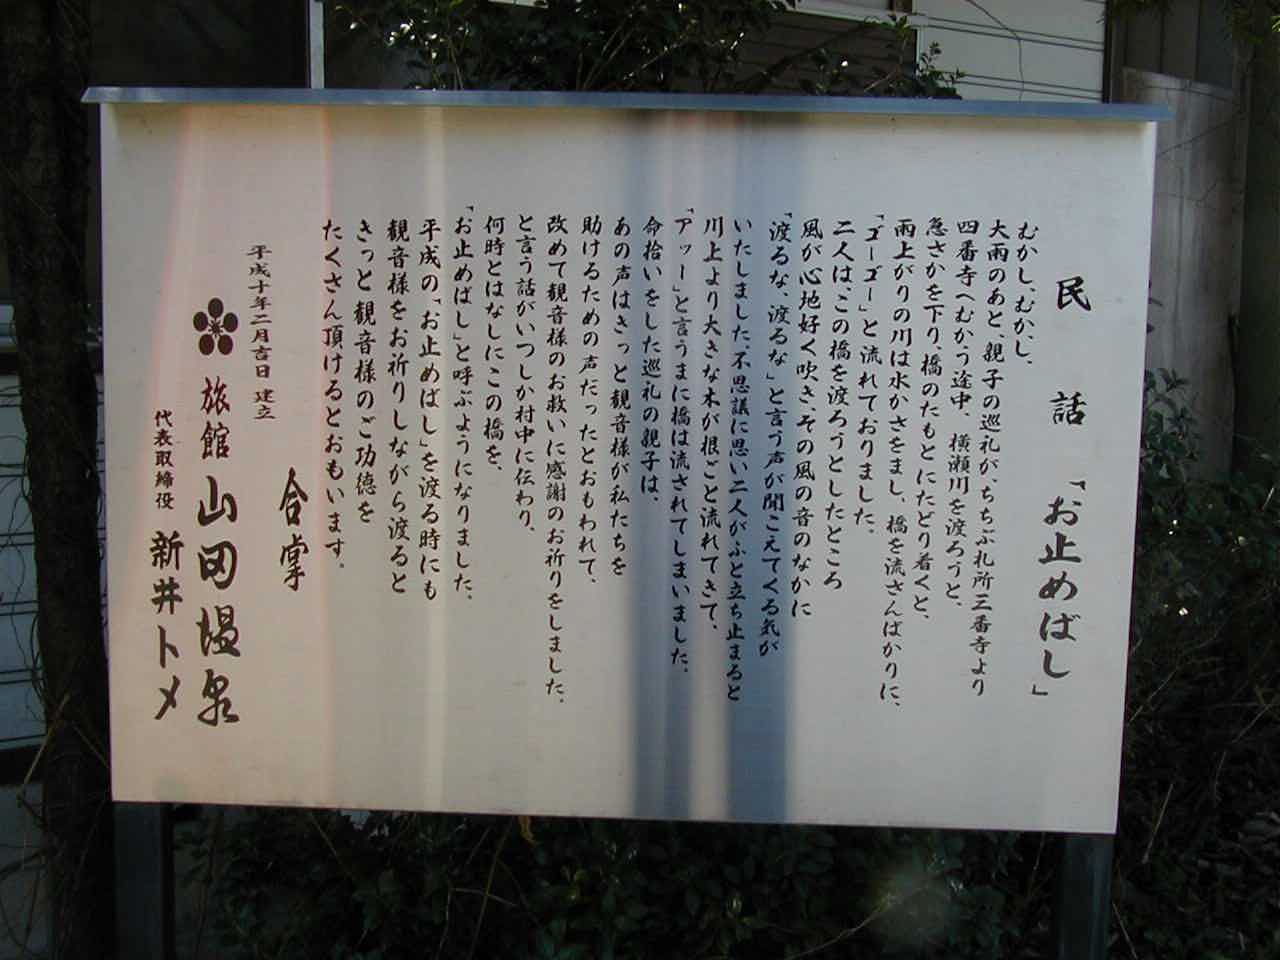 民話「お止めばし」
むかし、むかし、
大雨のあと、親子の巡礼が、ちちぶ札所三番寺より
四番寺へむかう途中、横瀬川を渡ろうと、
急さかを下り、橋のたもとにたどり着くと、
雨上がりの川は水かさをまし、橋を流さんばかりに、
「ゴーゴー」と流れておりました。
二人は、この橋を渡ろうとしたところ
風が心地好く吹き、その風の音のなかに
「渡るな、渡るな」と言う声が聞こえてくる気が
いたしました、不思議に思い二人がふと立ち止まると
川上より大きな木が根ごと流れてきて、
「アッー」と言うまに橋は流されてしまいました。
命拾いをした巡礼の親子は、
あの声はきっと観音様が私たちを
助けるための声だったとおもわれて、
改めて観音様のお救いに感謝のお祈りをしました。
と言う話がいつしか村中に伝わり、
何時とはなしにこの橋を、
「お止めばし」と呼ぶようになりました。
平成の「お止めばし」を渡る時にも
観音様をお祈りしながら渡ると
きっと観音様のご功徳を
たくさん頂けるとおもいます。
合掌
平成十年二月吉日 建立
旅館 山田温泉
代表取締役 新井トメ